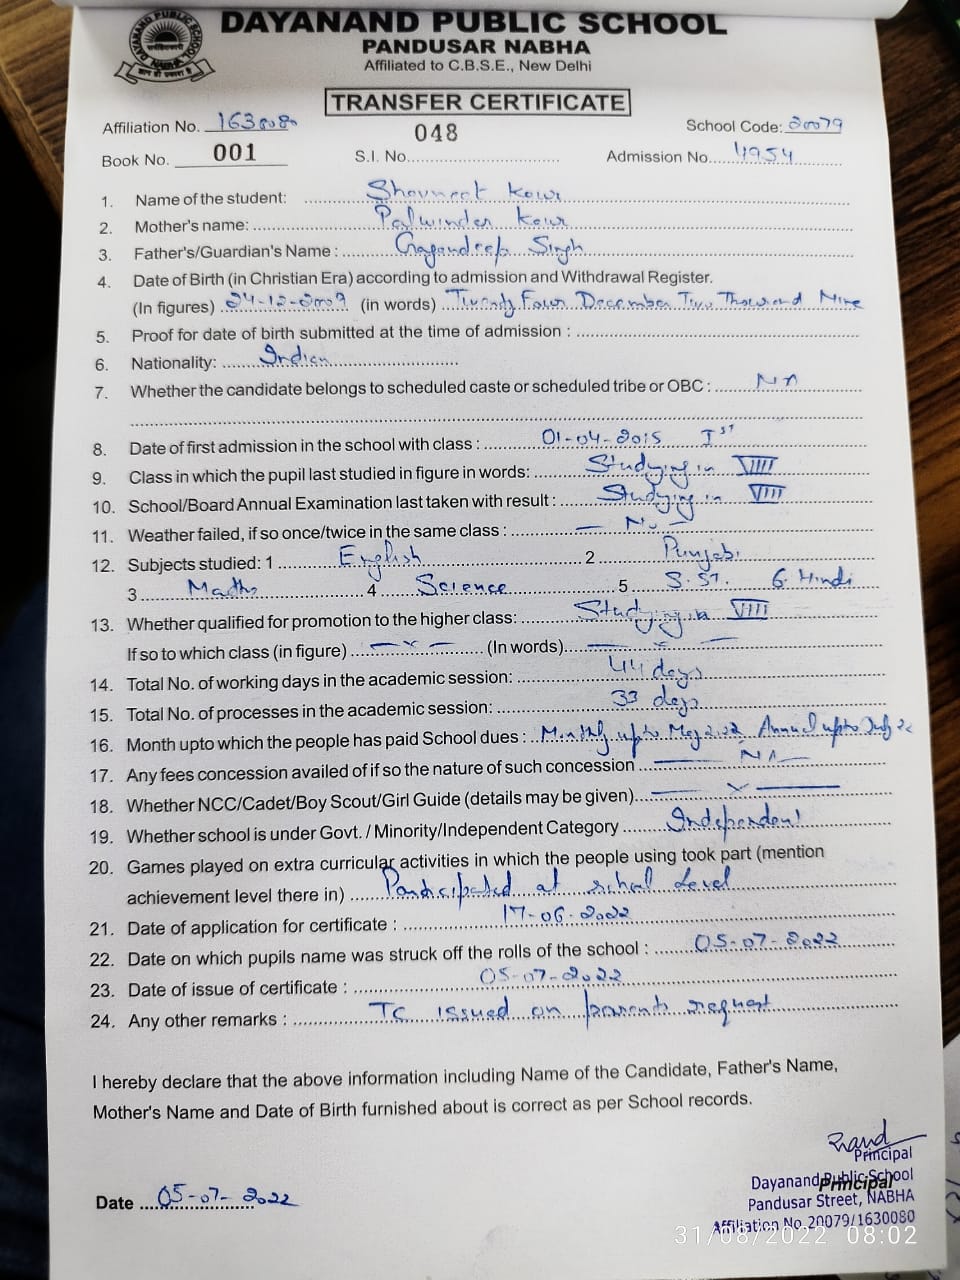 DAYANAND PUBLIC SCHOOL
PANDUSAR NABHA
Affiliated to C.B.S.E., New Delhi
TRANSFER CERTIFICATE
Affiliation No. 1630080
School Code: 20079
048
Book No. 001
S.I. No.
Admission No. 4954
1. Name of the student: Shavneet Kour
2. Mother's name: Palwinder Kour
3. Father's/Guardian's Name : Gagandeep Singh
4. Date of Birth (in Christian Era) according to admission and Withdrawal Register.
(In figures) 24-12-2009 (in words) Twenty Four December Two Thousand Nine
5. Proof for date of birth submitted at the time of admission :
6. Nationality: Indian
7. Whether the candidate belongs to scheduled caste or scheduled tribe or OBC :
8. Date of first admission in the school with class : 01-04-2015 Ist
9. Class in which the pupil last studied in figure in words: Studying in VIII
10. School/Board Annual Examination last taken with result : Studying in VIII
11. Weather failed, if so once/twice in the same class : — No —
12. Subjects studied: 1 English 2 Punjabi
3 Maths 4 Science 5 S.St. 6 Hindi
13. Whether qualified for promotion to the higher class: Studying in VIII
If so to which class (in figure) — x — (In words) — x —
14. Total No. of working days in the academic session: 44 days
15. Total No. of processes in the academic session: 33 days
16. Month upto which the people has paid School dues : Monthly upto May 2022 Annual upto July 22
17. Any fees concession availed of if so the nature of such concession — NA —
18. Whether NCC/Cadet/Boy Scout/Girl Guide (details may be given) — x —
19. Whether school is under Govt. / Minority/Independent Category Independent
20. Games played on extra curricular activities in which the people using took part (mention
achievement level there in) Participated at school level
21. Date of application for certificate : 17-06-2022
22. Date on which pupils name was struck off the rolls of the school : 05-07-2022
23. Date of issue of certificate : 05-07-2022
24. Any other remarks : TC issued on parents request
I hereby declare that the above information including Name of the Candidate, Father's Name,
Mother's Name and Date of Birth furnished about is correct as per School records.
Principal
Dayanand Public School
Principal
Pandusar Street, NABHA
Affiliation No. 20079/1630080
Date 05-07-2022
31/08/2022 08:02